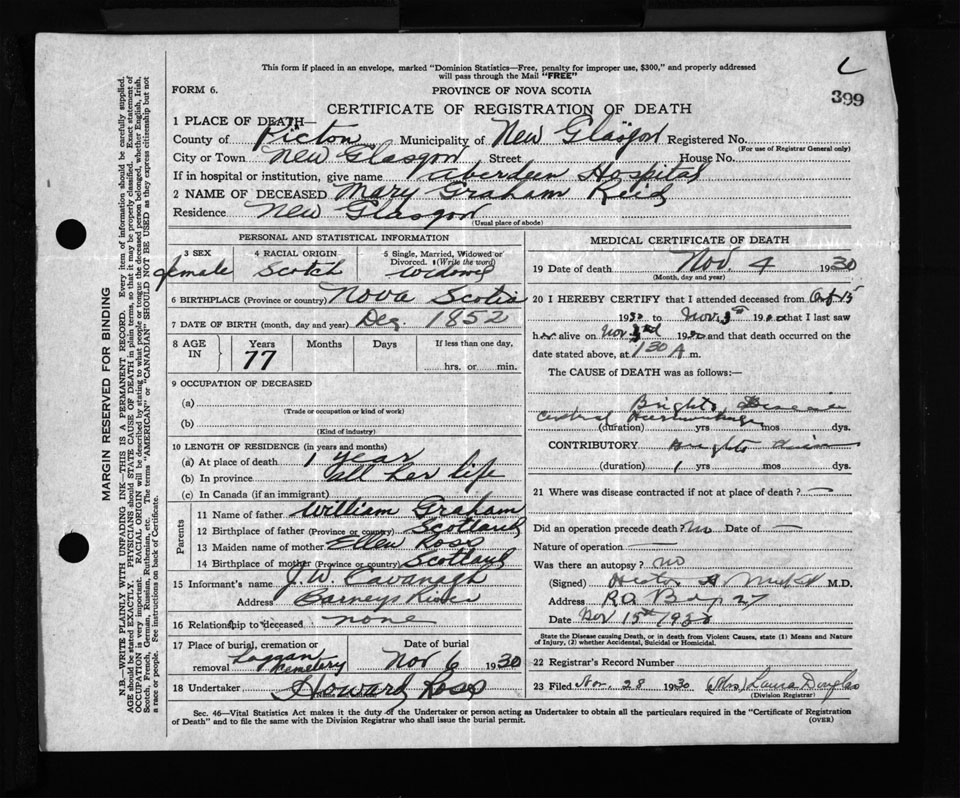 This form if placed in an envelope, marked "Dominion Statistics—Free, penalty for improper use, $300," and properly addressed
will pass through the Mail "FREE"
L
399
FORM 6.
PROVINCE OF NOVA SCOTIA
CERTIFICATE OF REGISTRATION OF DEATH
1 PLACE OF DEATH—
County of Pictou Municipality of New Glasgow Registered No.
(For use of Registrar General only)
City or Town New Glasgow Street House No.
If in hospital or institution, give name Aberdeen Hospital
2 NAME OF DECEASED Mary Graham Reid
Residence New Glasgow
(Usual place of abode)
PERSONAL AND STATISTICAL INFORMATION
3 SEX
female
4 RACIAL ORIGIN
Scotch
5 Single, Married, Widowed or
Divorced. (Write the word)
Widowed
6 BIRTHPLACE (Province or country) Nova Scotia
7 DATE OF BIRTH (month, day and year) Dec. 1852
8 AGE
IN
Years Months Days If less than one day,
77
hrs. or min.
9 OCCUPATION OF DECEASED
(a)
(Trade or occupation or kind of work)
(b)
(Kind of industry)
10 LENGTH OF RESIDENCE (in years and months)
(a) At place of death 1 year
(b) In province all her life
(c) In Canada (if an immigrant)
Parents
11 Name of father William Graham
12 Birthplace of father (Province or country) Scotland
13 Maiden name of mother Ellen Ross
14 Birthplace of mother (Province or country) Scotland
15 Informant's name J. W. Cavanagh
Address Barneys River
16 Relationship to deceased none
17 Place of burial, cremation or
removal Loggan Cemetery
Date of burial
Nov 6 1930
18 Undertaker Howard Ross
MEDICAL CERTIFICATE OF DEATH
19 Date of death Nov. 4 1930
(Month, day and year)
20 I HEREBY CERTIFY that I attended deceased from 15
1930 to Nov 3rd 1930 that I last saw
her alive on Nov 3rd 1930 and that death occurred on the
date stated above, at 1 30 A m.
The CAUSE of DEATH was as follows:—
Brights Disease
(duration) yrs mos dys.
CONTRIBUTORY Brights
(duration) 1 yrs mos dys.
21 Where was disease contracted if not at place of death? —
Did an operation precede death? no Date of —
Nature of operation —
Was there an autopsy? no
(Signed) M.D.
Address P.O. Box 27
Date Nov 15th 1930
State the Disease causing Death, or in death from Violent Causes, state (1) Means and Nature
of Injury, (2) whether Accidental, Suicidal or Homicidal.
22 Registrar's Record Number
23 Filed Nov. 28 1930 (Mrs) Laura Douglas
(Division Registrar)
Sec. 46—Vital Statistics Act makes it the duty of the Undertaker or person acting as Undertaker to obtain all the particulars required in the "Certificate of Registration
of Death" and to file the same with the Division Registrar who shall issue the burial permit.
(OVER)
MARGIN RESERVED FOR BINDING
N.B.—WRITE PLAINLY WITH UNFADING INK—THIS IS A PERMANENT RECORD. Every item of information should be carefully supplied.
AGE should be stated EXACTLY. PHYSICIANS should STATE CAUSE OF DEATH in plain terms, so that it may be properly classified. Exact statement of
OCCUPATION is very important. RACIAL ORIGIN will be described by stating to what people or tongue the deceased person belonged, whether English, Irish,
Scotch, French, German, Russian, Ruthenian, etc. The terms "AMERICAN" or "CANADIAN" SHOULD NOT BE USED as they express citizenship but not
a race or people. See instructions on back of Certificate.